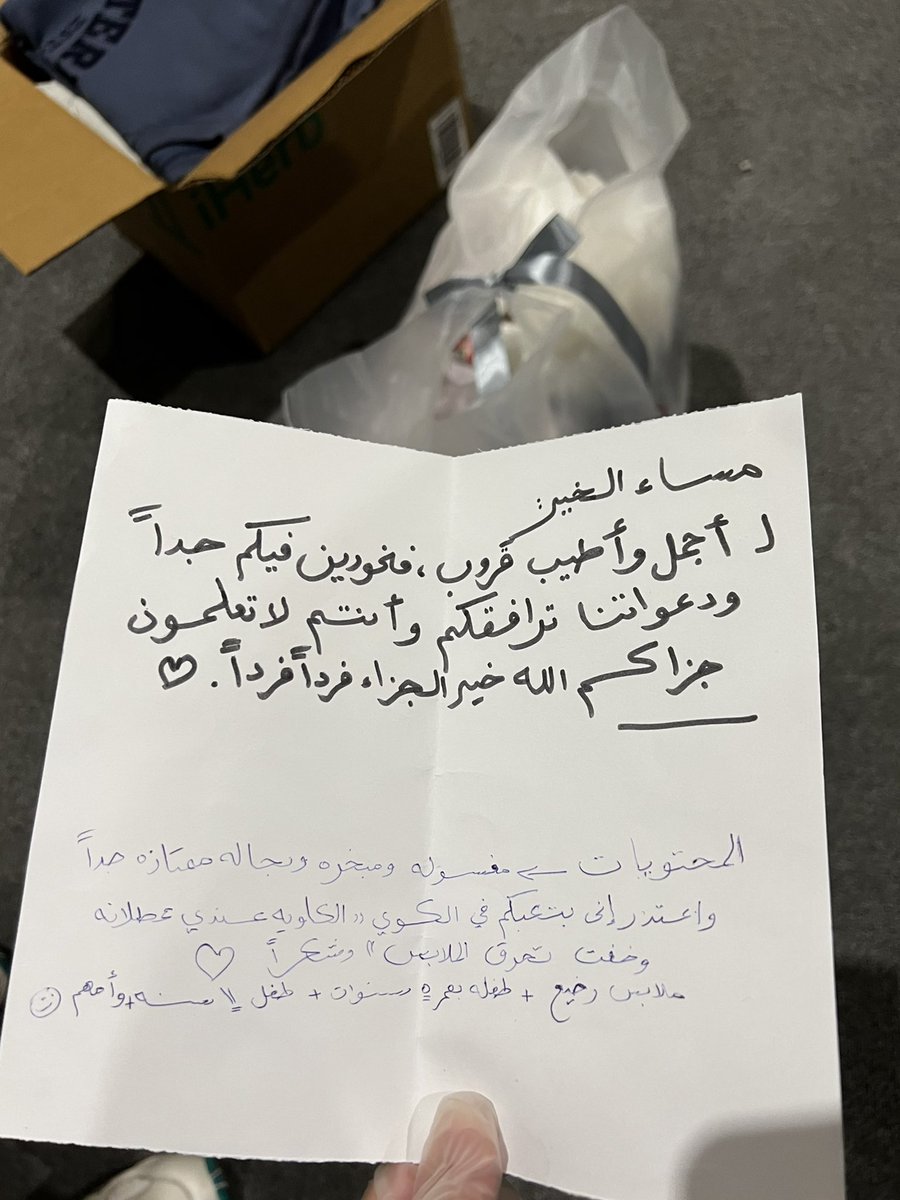 TER
iHerb
مساء الخير:
لـ أجمل وأطيب قروب، فخورين فيكم جداً
ودعواتنا ترافقكم وأنتم لا تعلمون
جزاكم الله خير الجزاء فرداً فرداً. ♡
المحتويات ← مغسوله ومبخره وبحاله ممتازه جداً
واعتذر إني بتعبكم في الكوي "الكاويه عندي عطلانه
وخفت تحرق الملابس" وشكراً ♡
ملابس رضيع + طفله بعمر ٥ سنوات + طفل ١١ سنه + وأمهم ☺